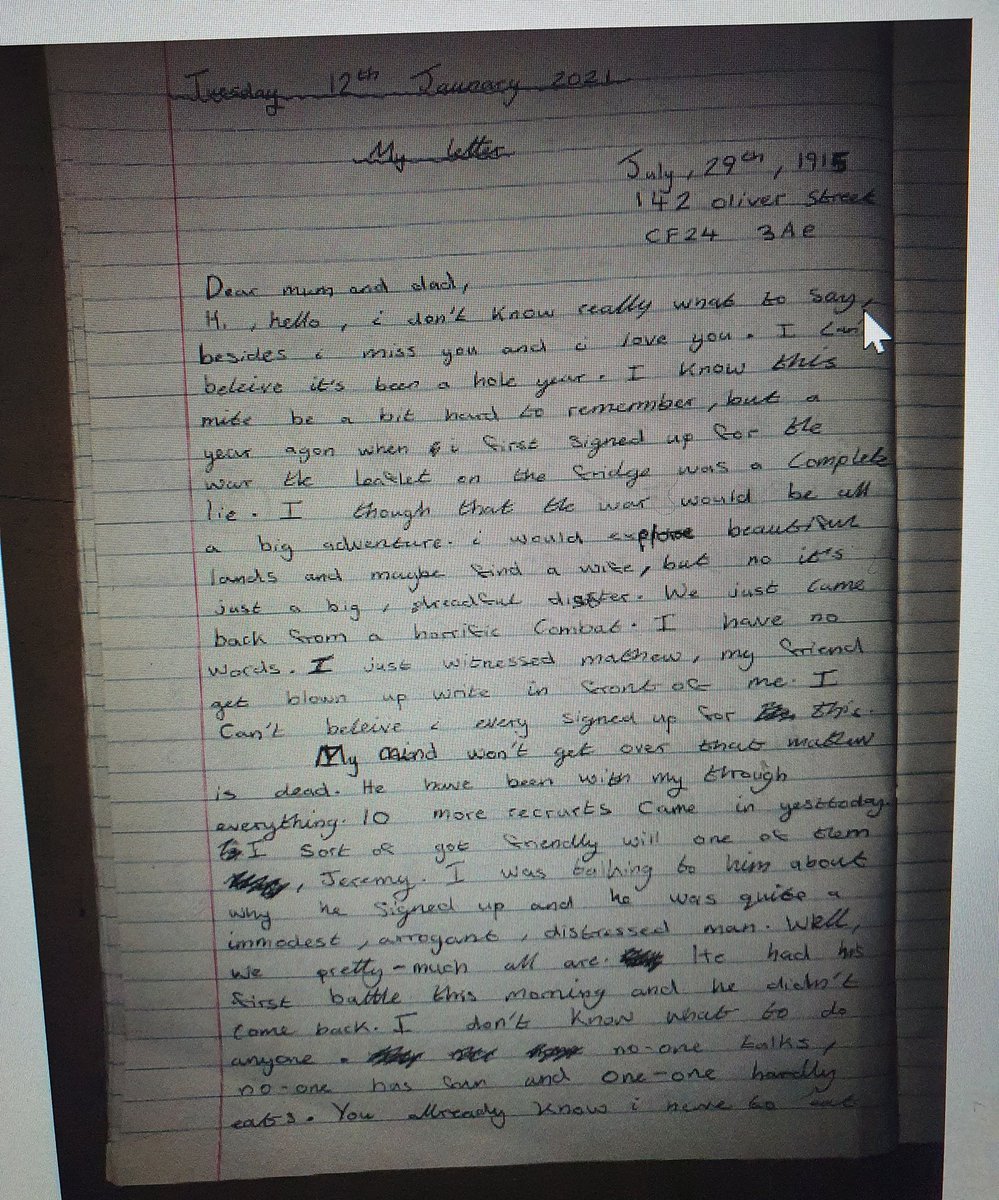 Tuesday 12th January 2021
My letter
July, 29th, 1915
142 oliver street
CF24 3Ae
Dear mum and dad,
Hi, hello, i don't know really what to say,
besides i miss you and i love you. I can
beleive it's been a hole year. I know this
mite be a bit hard to remember, but a
year agon when i first signed up for the
war the leaflet on the fridge was a complete
lie. I though that the war would be all
a big adventure. i would explore beautiful
lands and maybe find a wife, but no it's
just a big, dreadful disster. We just came
back from a horrific combat. I have no
words. I just witnessed mathew, my friend
get blown up write in front of me. I
can't beleive i every signed up for this.
My mind won't get over that matew
is dead. He have been with my through
everything. 10 more recruits came in yesttoday.
I sort of got friendly will one of them
, Jeremy. I was talking to him about
why he signed up and he was quite a
immodest, arrogant, distressed man. Well,
we pretty-much all are. He had his
first battle this morning and he didn't
come back. I don't know what to do
anyone. no-one talks,
no-one has fun and one-one hardly
eats. You allready know i have to eat